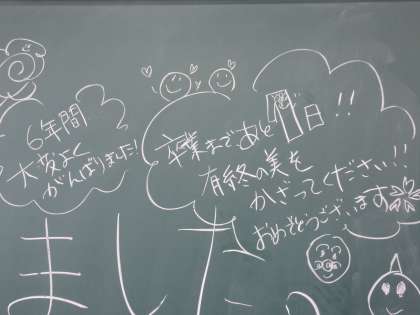 6年間
大変よく
がんばりました!
卒業まであと1日!!
有終の美を
かざってください!!
おめでとうございます
ました